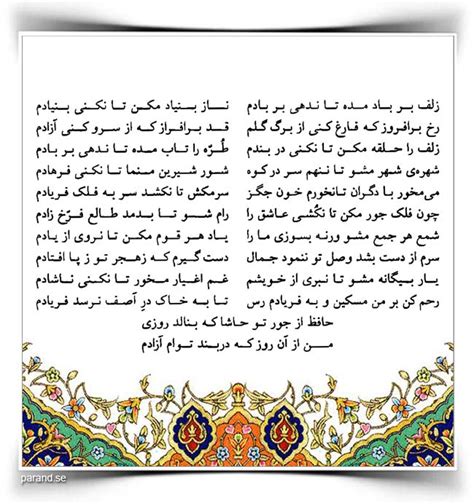 زلف بر باد مده تا ندهی بر بادم ناز بنیاد مکن تا نکنی بنیادم
رخ برافروز که فارغ کنی از برگ گلم قد برافراز که از سرو کنی آزادم
زلف را حلقه مکن تا نکنی در بندم طُرّه را تاب مده تا ندهی بر بادم
شهره‌ی شهر مشو تا ننهم سر در کوه شور شیرین منما تا نکنی فرهادم
می‌مخور با دگران تانخورم خون جگر سرمکش تا نکشد سر به فلک فریادم
چون فلک جور مکن تا نکُشی عاشق را رام شو تا بدمد طالع فرّخ زادم
شمع هر جمع مشو ورنه بسوزی ما را یاد هر قوم مکن تا نروی از یادم
سرم از دست بشد وصل تو ننمود جمال دست گیرم که زهجر تو ز پا افتادم
یار بیگانه مشو تا نبری از خویشم غم اغیار مخور تا نکنی ناشادم
رحم کن بر من مسکین و به فریادم رس تا به خاک درِ آصف نرسد فریادم
حافظ از جور تو حاشا که بنالد روزی
من از آن روز که دربند توام آزادم
parand.se